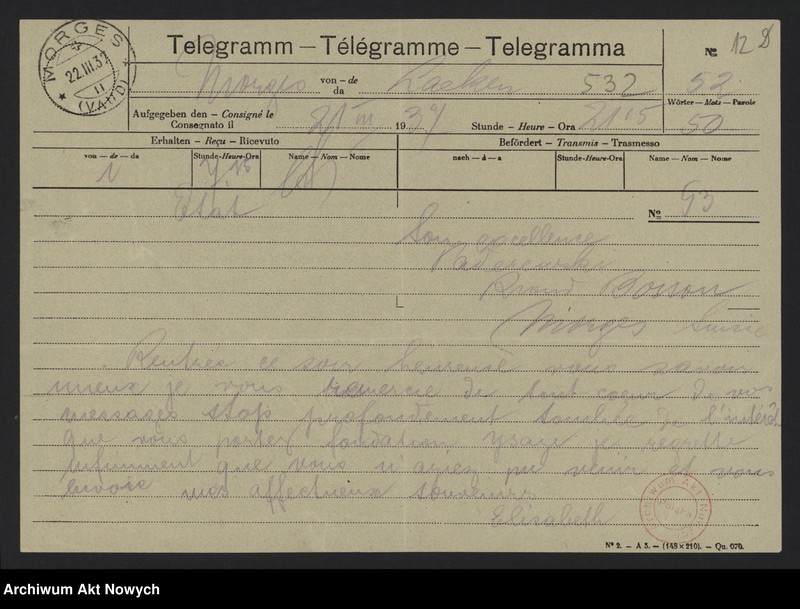 MORGES
22.III.37
11
(VAUD)
Telegramm – Télégramme – Telegramma
№ 12
Morges von – de da Laeken 532 52
Wörter – Mots – Parole
50
Aufgegeben den – Consigné le
Consegnato il 21 III 1937 Stunde – Heure – Ora 21 05
Erhalten – Reçu – Ricevuto
Befördert – Transmis – Trasmesso
von – de – da Stunde-Heure-Ora Name – Nom – Nome nach – à – a Stunde-Heure-Ora Name – Nom – Nome
Etat
№ 93
Son excellence
Paderewski
Riond Bosson
Morges Suisse
Rentrée ce soir heureuse vous savoir
mieux je vous remercie de tout coeur de vos
messages stop profondément touchée de l'intérêt
que vous portez fondation Ysaye je regrette
infiniment que vous n'ayez pu venir et vous
envoie mes affectueux souvenirs
Elisabeth
Archiwum Akt Nowych
№ 2. – A 5. – (148×210). – Qu. 070.
Archiwum Akt Nowych